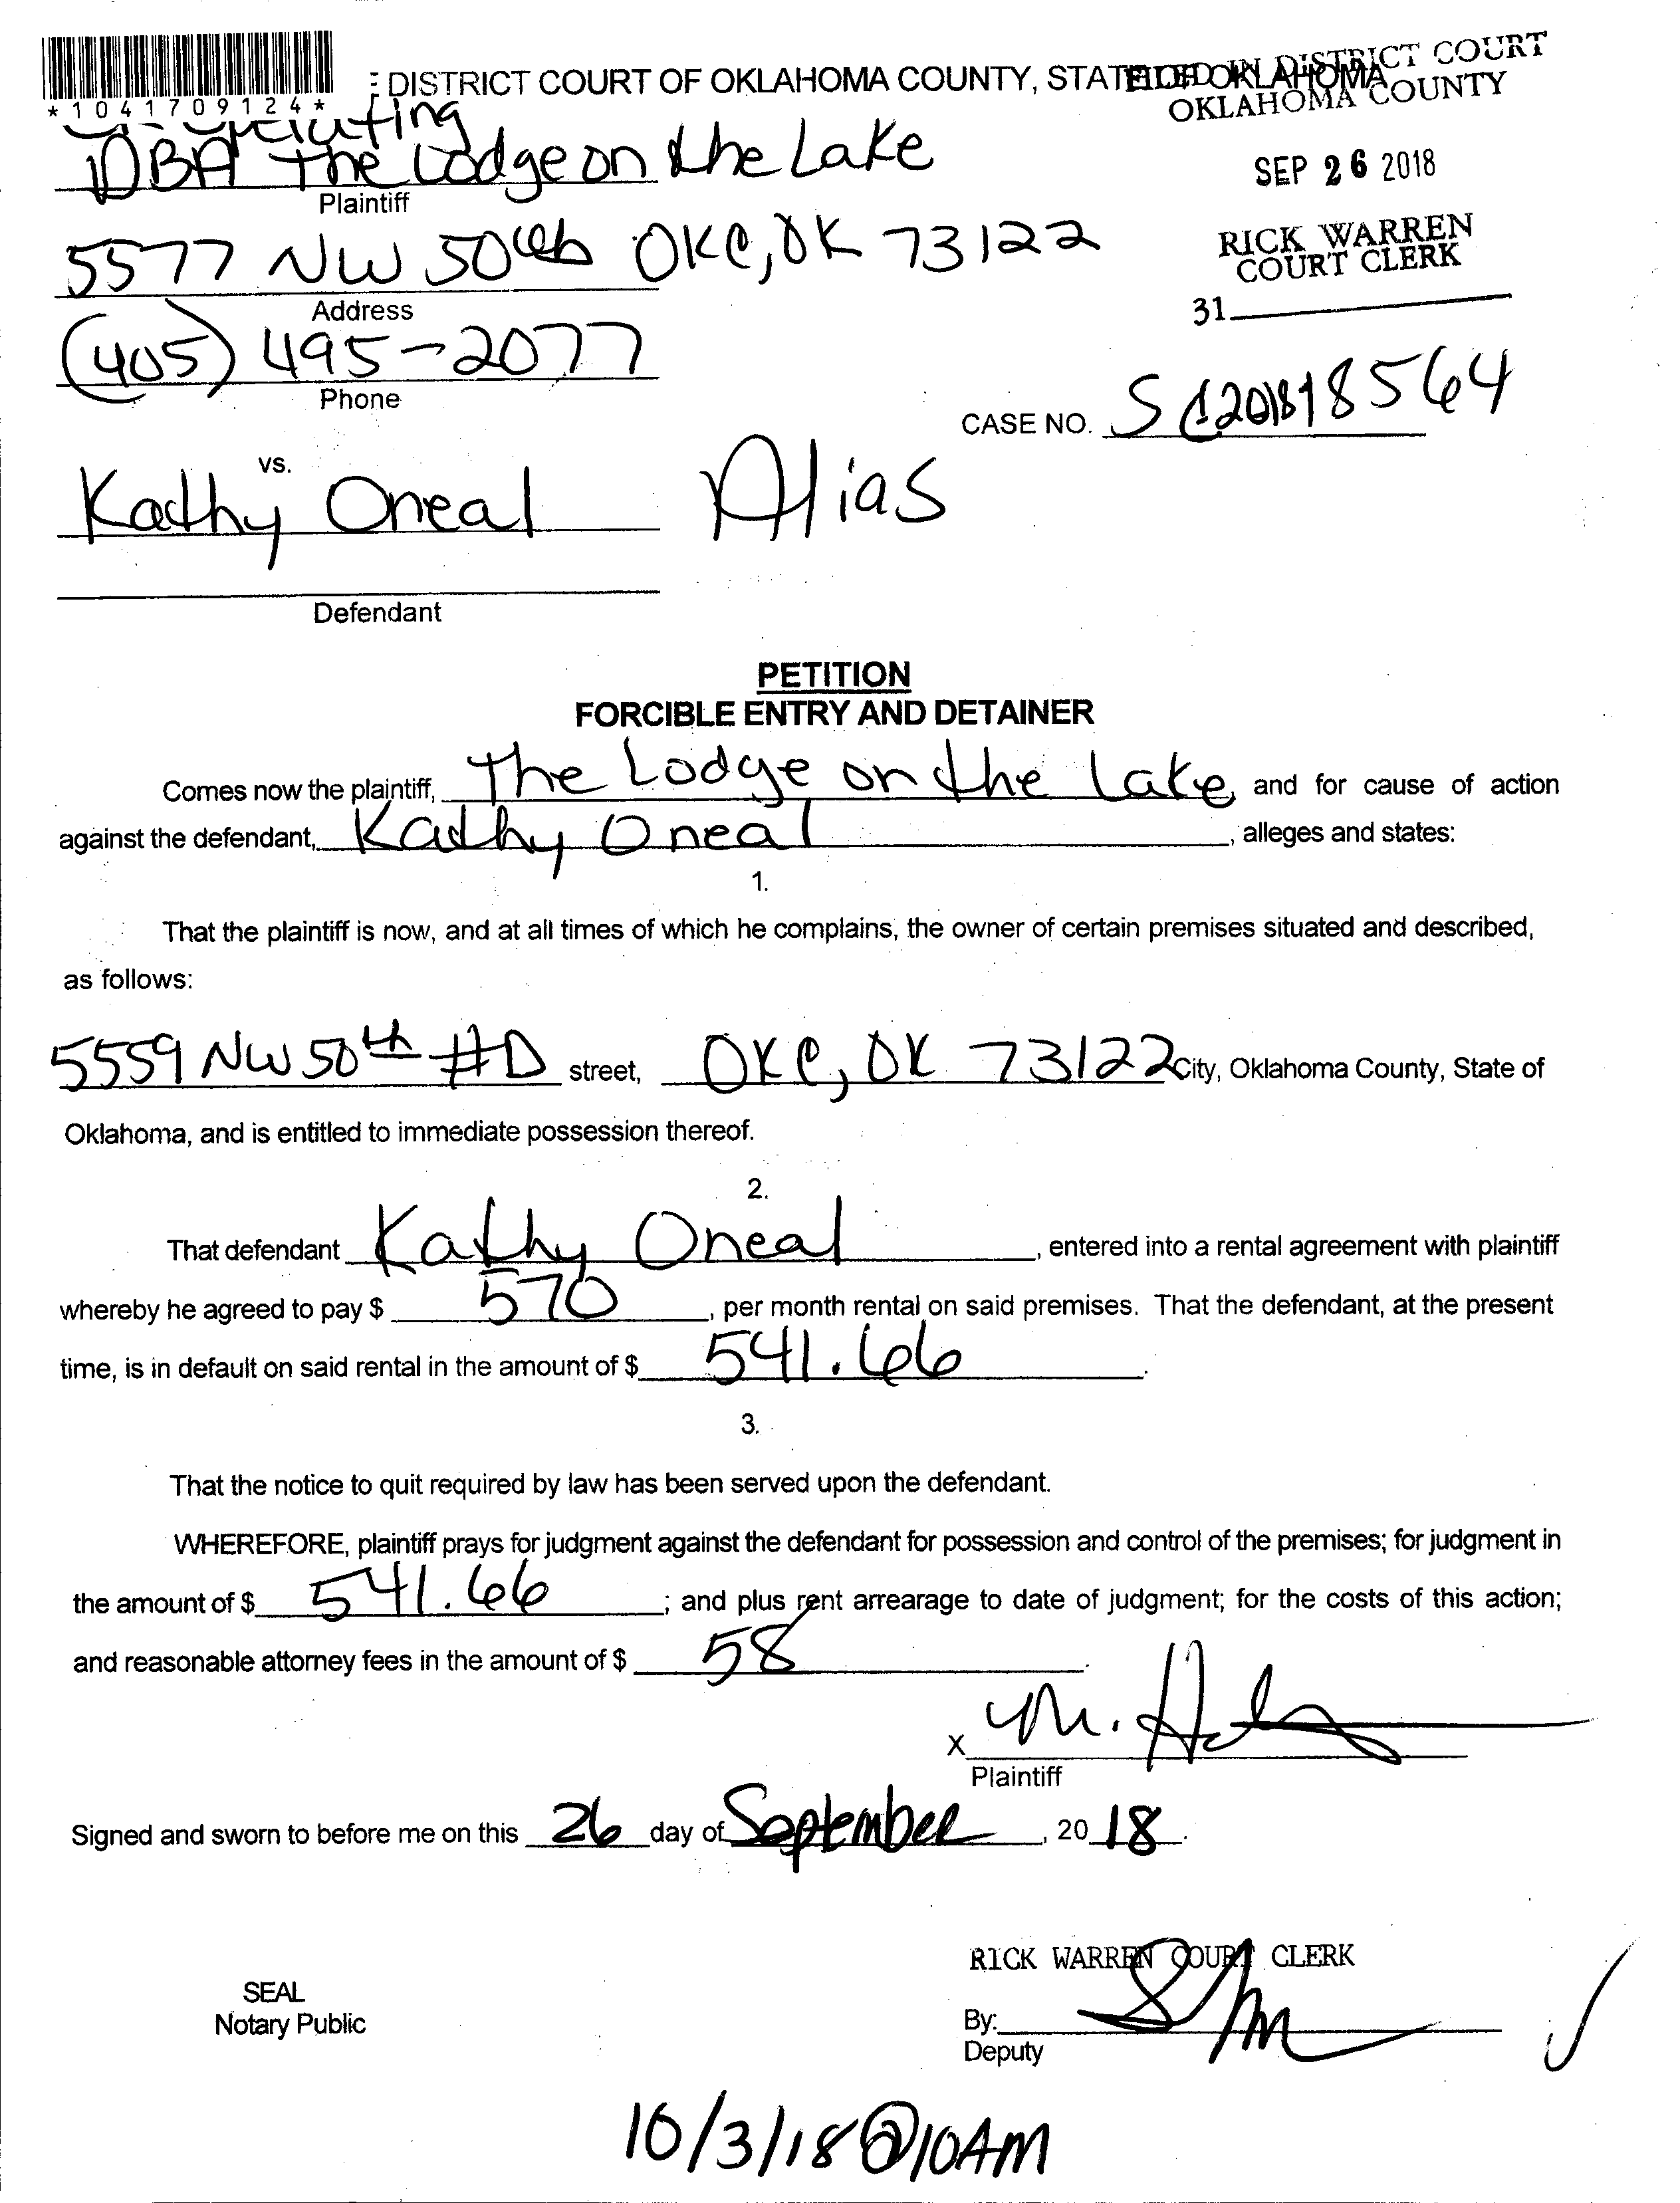 *1041709124*
DISTRICT COURT OF OKLAHOMA COUNTY, STATE OF OKLAHOMA
FILED IN DISTRICT COURT
OKLAHOMA COUNTY
DBA The Lodge on the Lake
Plaintiff
SEP 26 2018
5577 NW 50th OKC, OK 73122
RICK WARREN
COURT CLERK
Address
31
(405) 495-2077
Phone
CASE NO. SC201818564
vs.
Kathy Oneal Alias
Defendant
PETITION
FORCIBLE ENTRY AND DETAINER
Comes now the plaintiff, The Lodge on the Lake, and for cause of action
against the defendant, Kathy Oneal, alleges and states:
1.
That the plaintiff is now, and at all times of which he complains, the owner of certain premises situated and described,
as follows:
5559 NW 50th #D street, OKC, OK 73122 City, Oklahoma County, State of
Oklahoma, and is entitled to immediate possession thereof.
2.
That defendant Kathy Oneal, entered into a rental agreement with plaintiff
whereby he agreed to pay $ 570, per month rental on said premises. That the defendant, at the present
time, is in default on said rental in the amount of $ 541.66.
3.
That the notice to quit required by law has been served upon the defendant.
WHEREFORE, plaintiff prays for judgment against the defendant for possession and control of the premises; for judgment in
the amount of $ 541.66; and plus rent arrearage to date of judgment; for the costs of this action;
and reasonable attorney fees in the amount of $ 58.
X M.
Plaintiff
Signed and sworn to before me on this 26 day of September, 2018.
RICK WARREN COURT CLERK
SEAL
Notary Public
By:
Deputy
10/3/18 @10AM